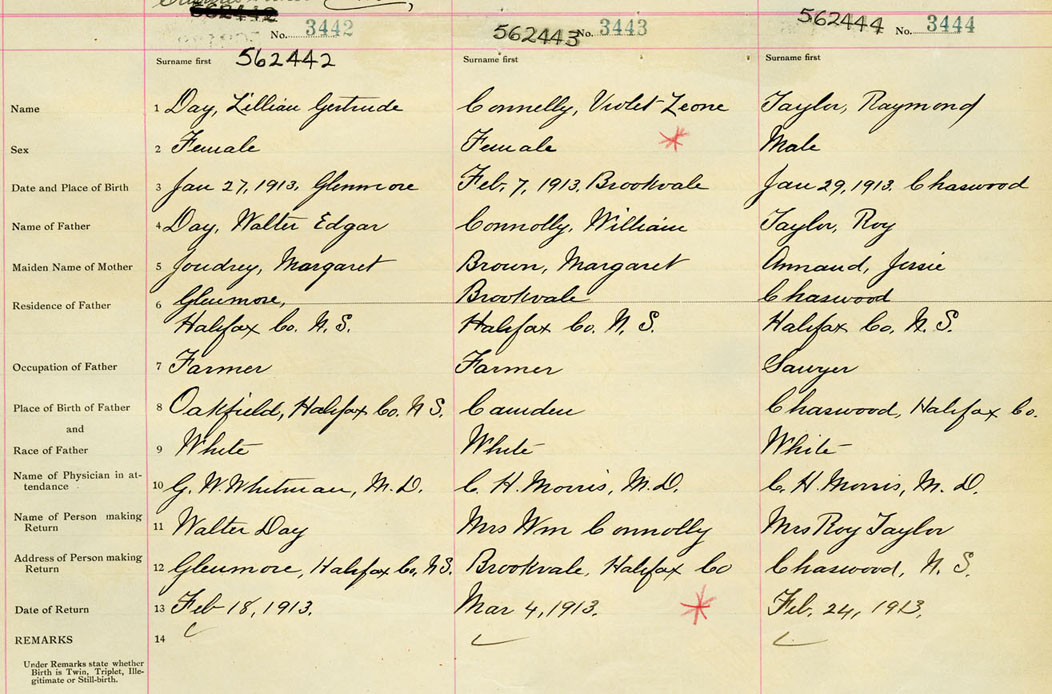 562442 562443 562444
No. 3442 No. 3443 No. 3444
Surname first 562442 Surname first Surname first
Name 1 Day, Lillian Gertrude Connelly, Violet Leone Taylor, Raymond
Sex 2 Female Female Male
Date and Place of Birth 3 Jan 27, 1913, Glenmore Feb, 7, 1913, Brookvale Jan 29, 1913. Chaswood
Name of Father 4 Day, Walter Edgar Connolly, William Taylor, Roy
Maiden Name of Mother 5 Joudrey, Margaret Brown, Margaret Annand, Jessie
Residence of Father 6 Glenmore, Brookvale Chaswood
Halifax Co. N. S. Halifax Co. N. S. Halifax Co, N. S.
Occupation of Father 7 Farmer Farmer Sawyer
Place of Birth of Father 8 Oakfield, Halifax Co. N S. Camden Chaswood, Halifax Co.
and
Race of Father 9 White White White
Name of Physician in at-
tendance 10 G. W. Whitman, M.D. C. H. Morris, M.D. C. H. Morris, M. D.
Name of Person making
Return 11 Walter Day Mrs Wm Connolly Mrs Roy Taylor
Address of Person making
Return 12 Glenmore, Halifax Co, N S. Brookvale, Halifax Co Chaswood, N. S.
Date of Return 13 Feb 18, 1913. Mar 4, 1913. Feb. 24, 1913.
REMARKS 14
Under Remarks state whether
Birth is Twin, Triplet, Ille-
gitimate or Still-birth.